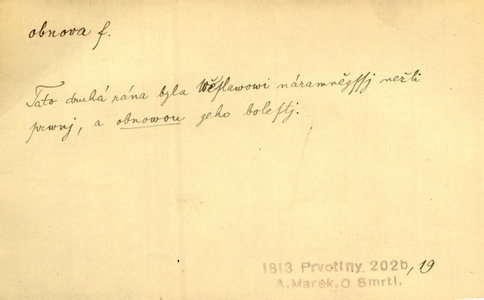 obnova f.
Tato druhá rána byla Wěslawowi náramněgssj nežli
prwnj, a obnowou geho bolestj.
1813 Prvotiny 202b, 19
A. Marek, O Smrti.